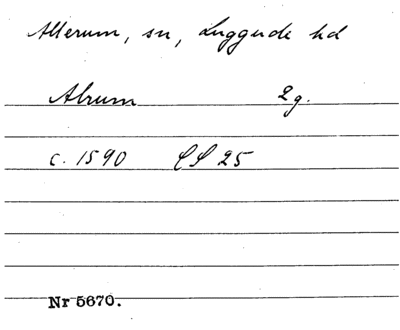 Allerum, sn, Luggude hd
Alrum 2g.
c. 1590 CS 25
Nr 5670.